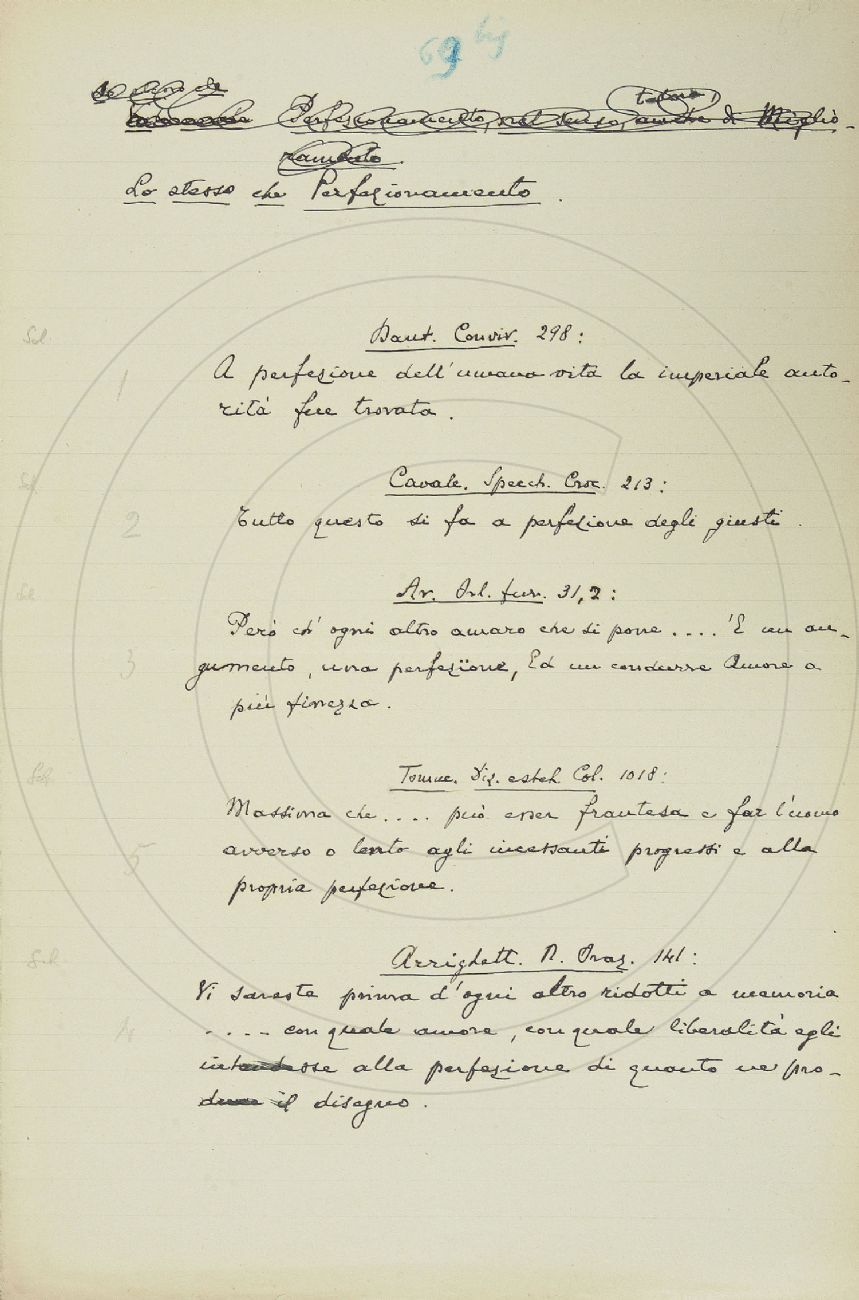 69 bis
Lo stesso che
Perfezionamento, nel senso, anche di Miglio-
talora
ramento.
Lo stesso che Perfezionamento.
Dant. Conviv. 298:
A perfezione dell'umana vita la imperiale auto-
rità fue trovata.
Cavalc. Specch. Croc. 213:
Tutto questo si fa a perfezione degli giusti.
Ar. Orl. fur. 31, 2:
Però ch'ogni altro amaro che si pone .... 'E un au-
gumento, una perfezïone, Ed un condurre Amore a
più finezza.
Tomm. Diz. estet. Col. 1018:
Massima che .... può esser frantesa e far l'uomo
avverso o lento agli incessanti progressi e alla
propria perfezione.
Arrighett. N. Oraz. 141:
Vi sareste prima d'ogni altro ridotti a memoria
.... con quale amore, con quale liberalità egli
intendesse alla perfezione di quanto ne pro-
il disegno.
1
2
3
5
4